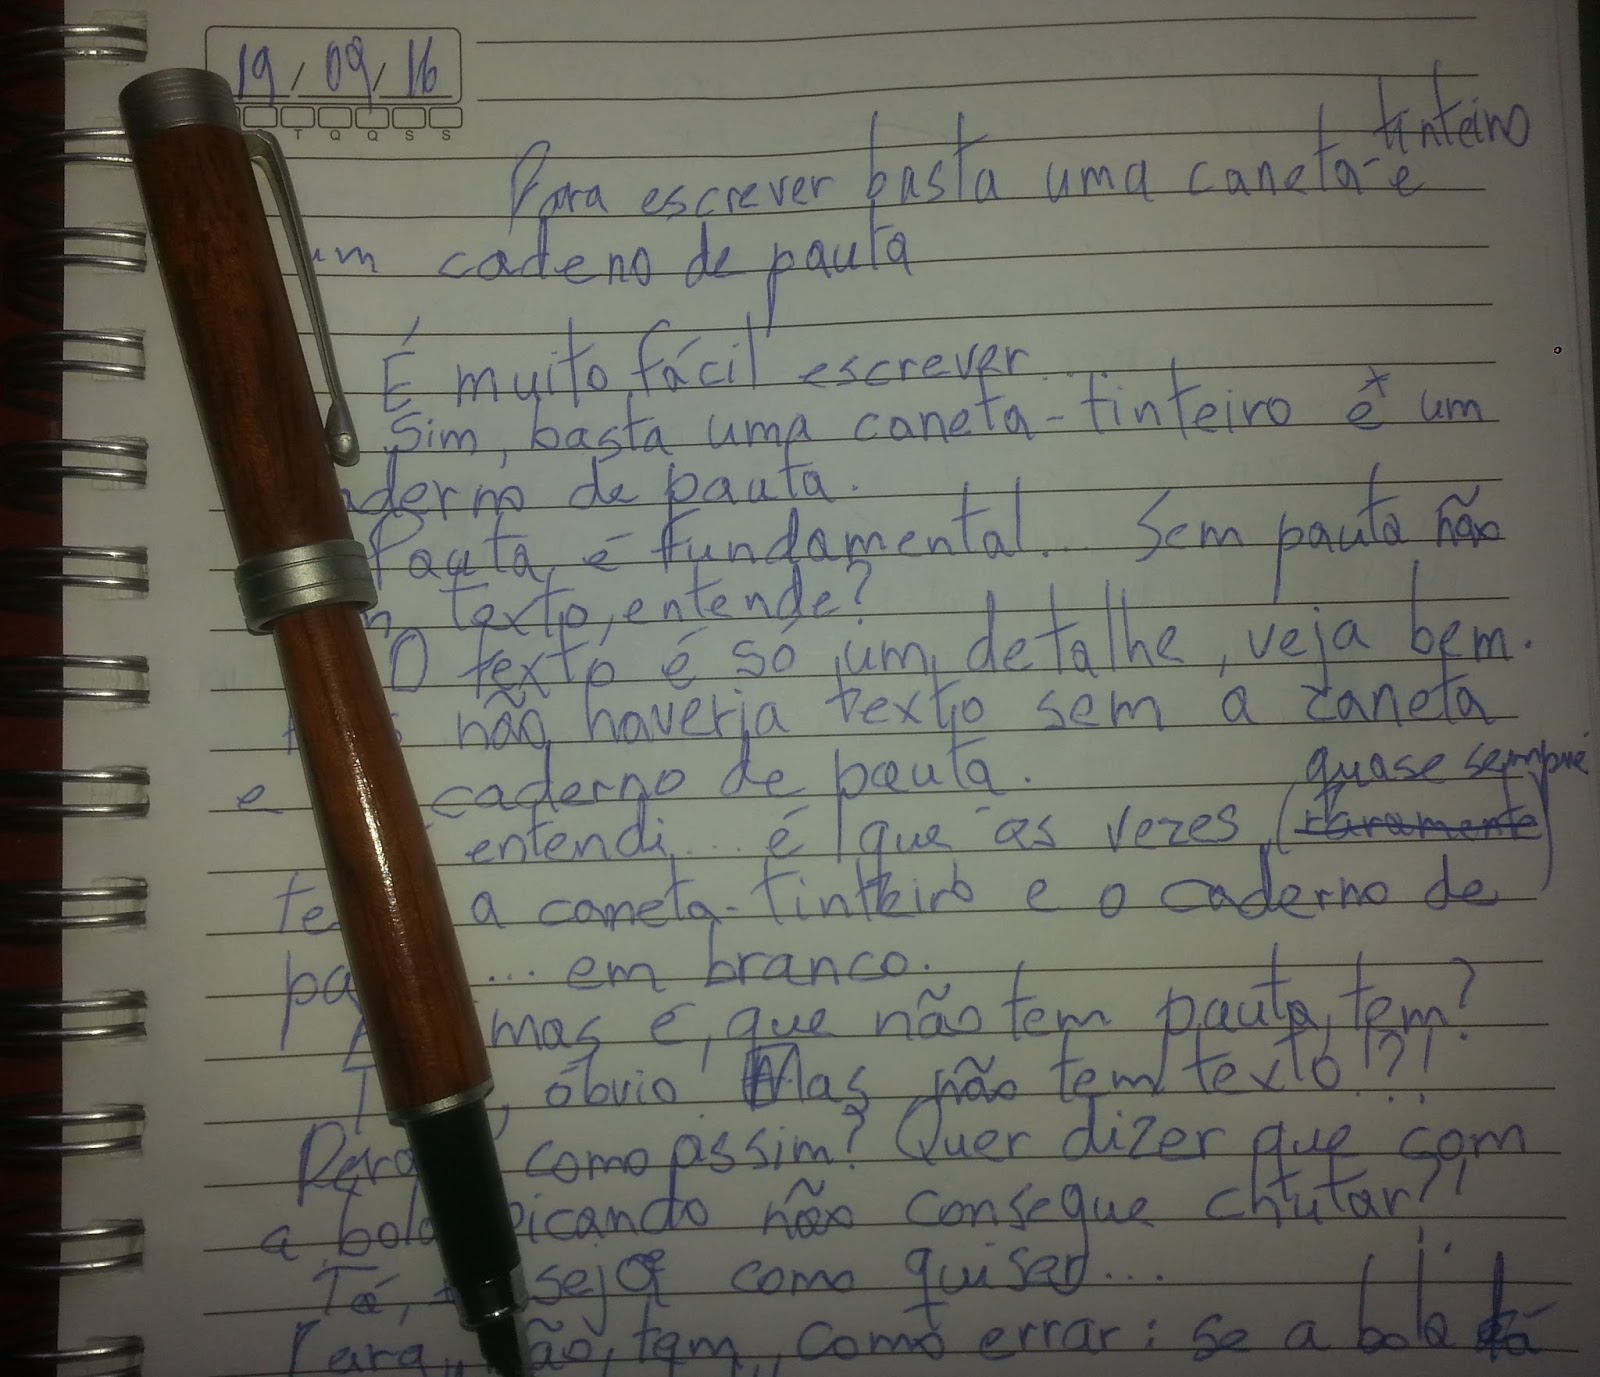 19 / 09 / 16
T Q Q S S
tinteiro
Para escrever basta uma caneta- e
um cadeno de pauta
É muito fácil escrever...
Sim, basta uma caneta-tinteiro e* um
aderno de pauta.
Pauta é fundamental... Sem pauta não
texto, entende?
O texto é só um detalhe, veja bem.
não haveria texto sem a caneta
e caderno de pauta.
quase sempre
entendi... é que as vezes, (raramente)
te a caneta-tinteiro e o caderno de
pa ... em branco.
mas é que não tem pauta, tem?
T , óbvio. Mas não tem texto...?!
Pera como assim? Quer dizer que com
a bola picando não consegue chutar?!
Tá, seja como quiser...
Para, não tem como errar: se a bola tá